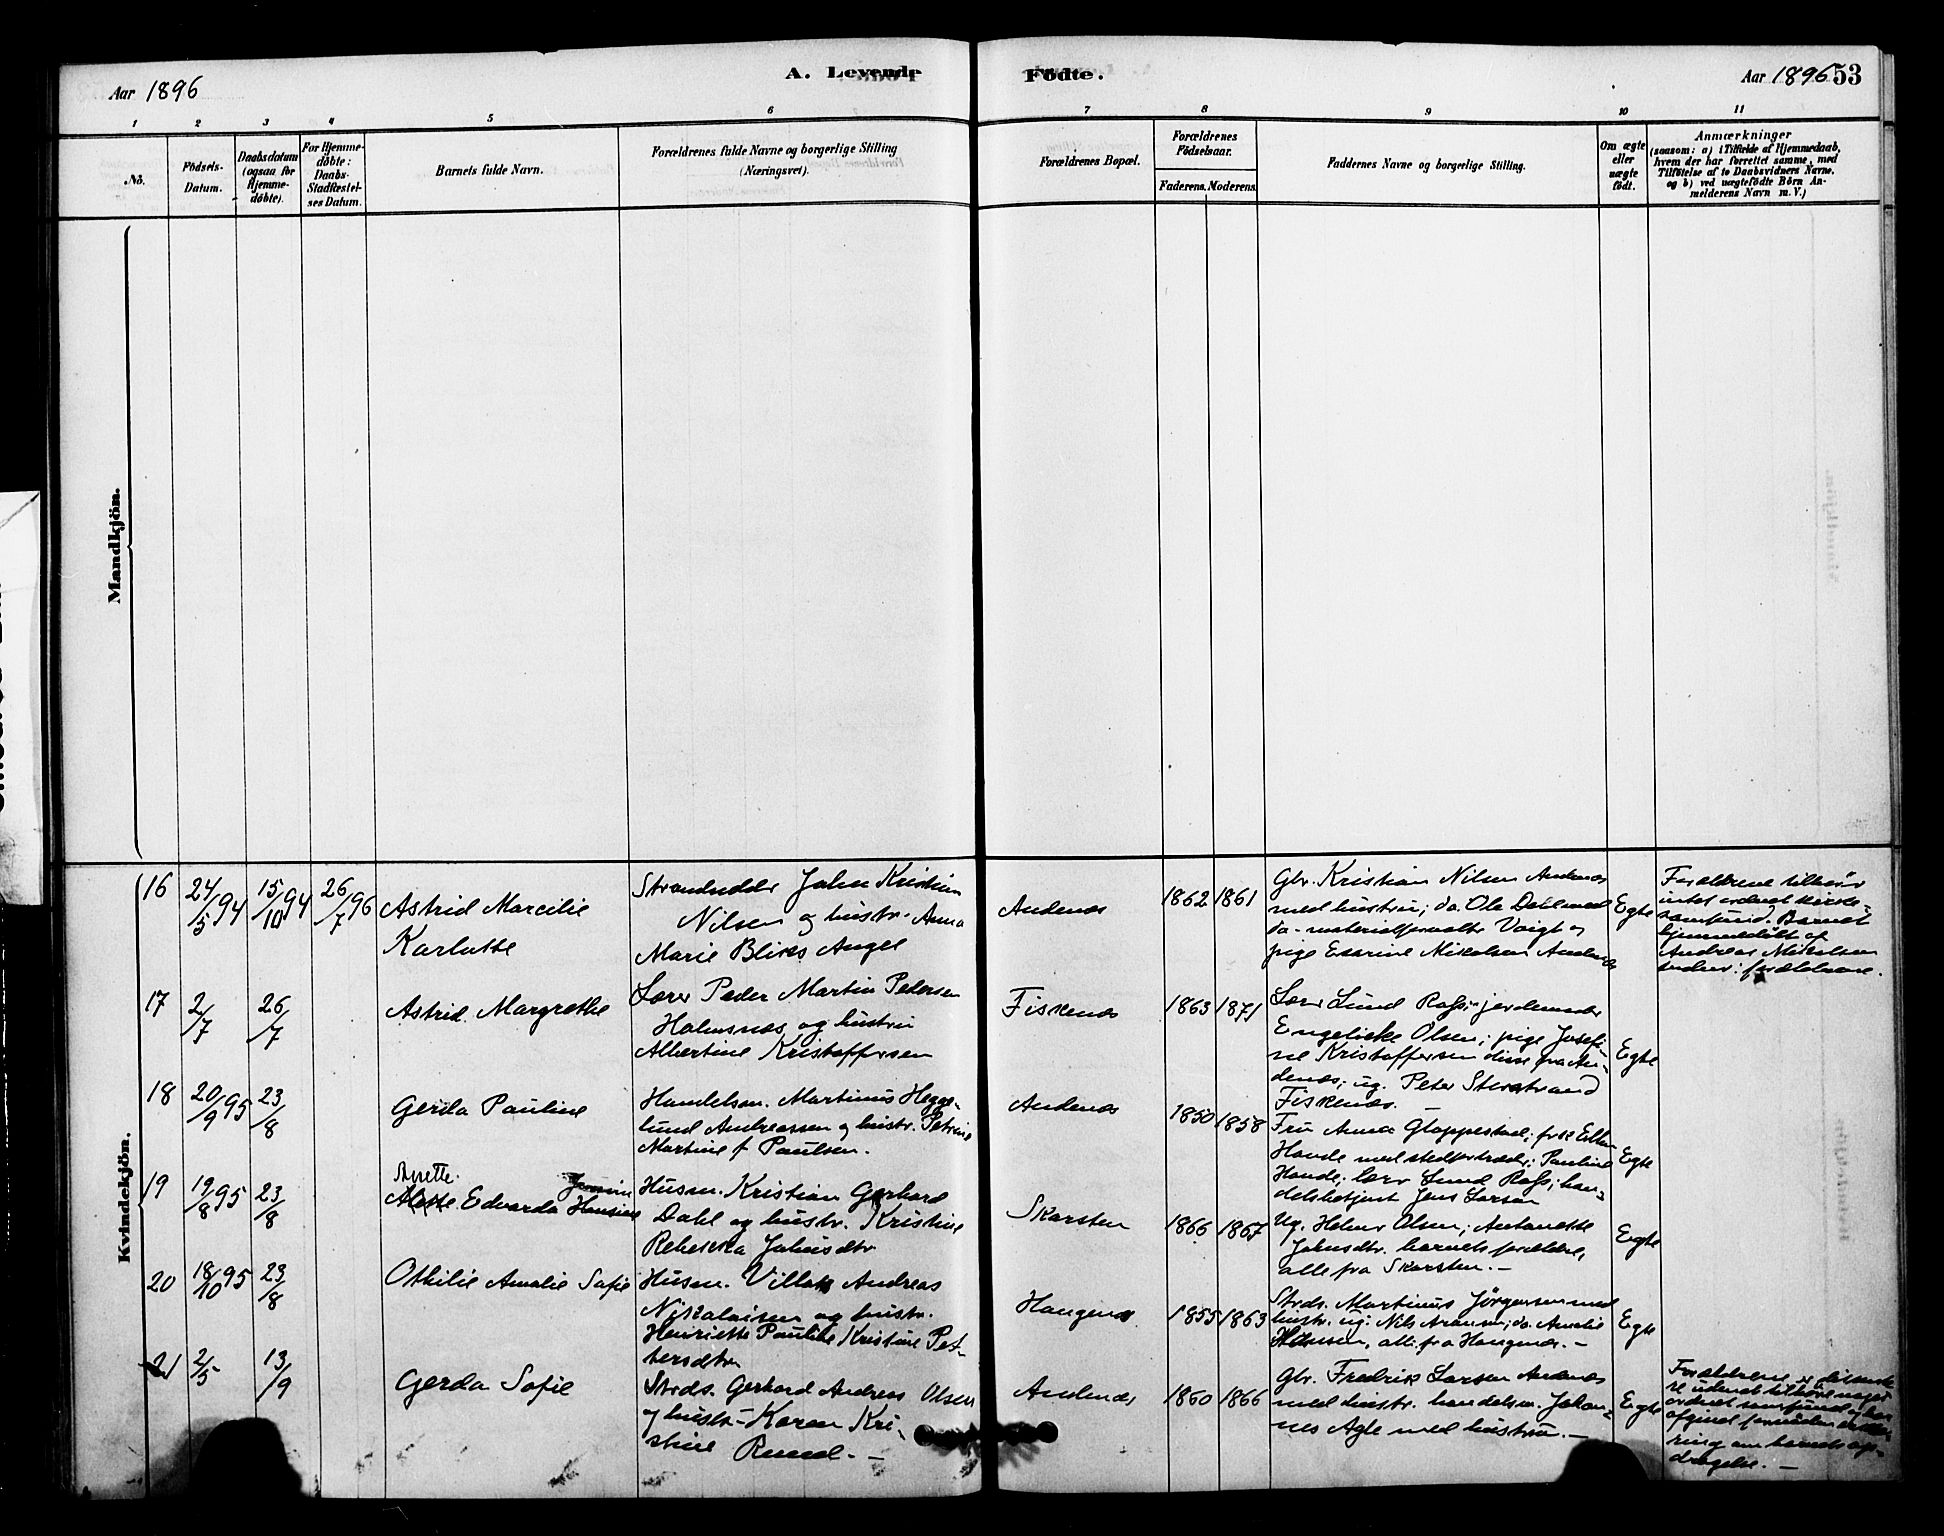 Aar 1896
A. Levende
Fødte.
Aar 1896
53
1 2 3 4 5 6 7 8 9 10 11
No.
Fødsels-
Datum.
Daabsdatum
(ogsaa for
Hjemme-
døbte).
For Hjemme-
døbte:
Daabs-
Stadfæstel-
ses Datum.
Barnets fulde Navn.
Forældrenes fulde Navne og borgerlige Stilling
(Næringsvei).
Forældrenes Bopæl.
Forældrenes
Fødselsaar.
Faderens. Moderens.
Faddernes Navne og borgerlige Stilling.
Om ægte
eller
uægte
født.
Anmærkninger
(saasom: a) i Tilfælde af Hjemmedaab,
hvem der har forrettet samme, med
Tilføielse af to Daabsvidners Navne,
og b) ved uægtefødte Børn An-
melderens Navn m. V.)
Mandkjön.
Kvindekjön.
16
24/5 94
15/10 94
26/7 96
Astrid Marcilie
Karlotte
Strandsidder Johan Kristian
Nilsen og hustr. Anna
Marie Bliks Angel
Andenæs
1862 1861
Gbr. Kristian Nilsen Andenæs
med hustru; do. Ole Dahl med
do. materialforvalter Voigt og
pige Esarine Mikalsen Andenæs
Egte
Forældrene tilhører
intet ordnet kirke-
samfund. Barnet
hjemmedøbt af
Andreas Mikalsen
17
2/7
26/7
Astrid Margrethe
Lærer Peder Martin Petersen
Holmsnæs og hustru
Albertine Kristoffersen
Fiskenæs
1863 1871
Lærer Lund Rass; jordemoder
Engelicke Olsen; pige Josefi-
ne Kristoffersen disse fra An-
denæs; ug. Peter Sterstrand
Fiskenæs.
Egte
18
20/9 95
23/8
Gerda Pauline
Handelsm. Martinus Hegge-
lund Andreassen og hustr. Petrine
Martine f. Paulsen.
Andenæs
1850 1858
Fru Anna Gloppestad; frk Ellen
Hande med stedfortræder; Pauline
Hande; lærer Lund Rass; han-
delsbetjent Jens Larsen
Egte
19
19/8 95
23/8
Anette
Alette Edvarda Hansine
Jensine
Husm. Kristian Gerhard
Dahl og hustr. Kristine
Rebekka Johnsdtr
Skarsten
1866 1867
Ug. Helmer Olsen; Antonette
Johnsdtr. barnets forældre,
alle fra Skarsten. —
Egte
20
18/10 95
23/8
Othilie Amalie Sofie
Husm. Villats Andreas
Nikolaisen og hustr.
Henriette Pauline Kristine Pet-
tersdtr
Haugenes
1855 1863
Strds. Martinus Jørgensen med
hustr. ug. Nils Aronsen; do. Amalie
Hansen, alle fra Haugenes. —
Egte
21
2/5
13/9
Gerda Sofie
Strds. Gerhard Andreas Olsen
og hustr. Karen Kri-
stine Ruud. —
Andenæs
1860 1866
Gbr. Fredrik Larsen Andenæs
med hustr. handelsm. Johan-
nes Agle med hustru. —
Egte
Forældrene er dissente-
re uden at tilhøre noget
ordnet samfund og har
afgivet formulen erklæ-
ring om barnets op-
dragelse. —